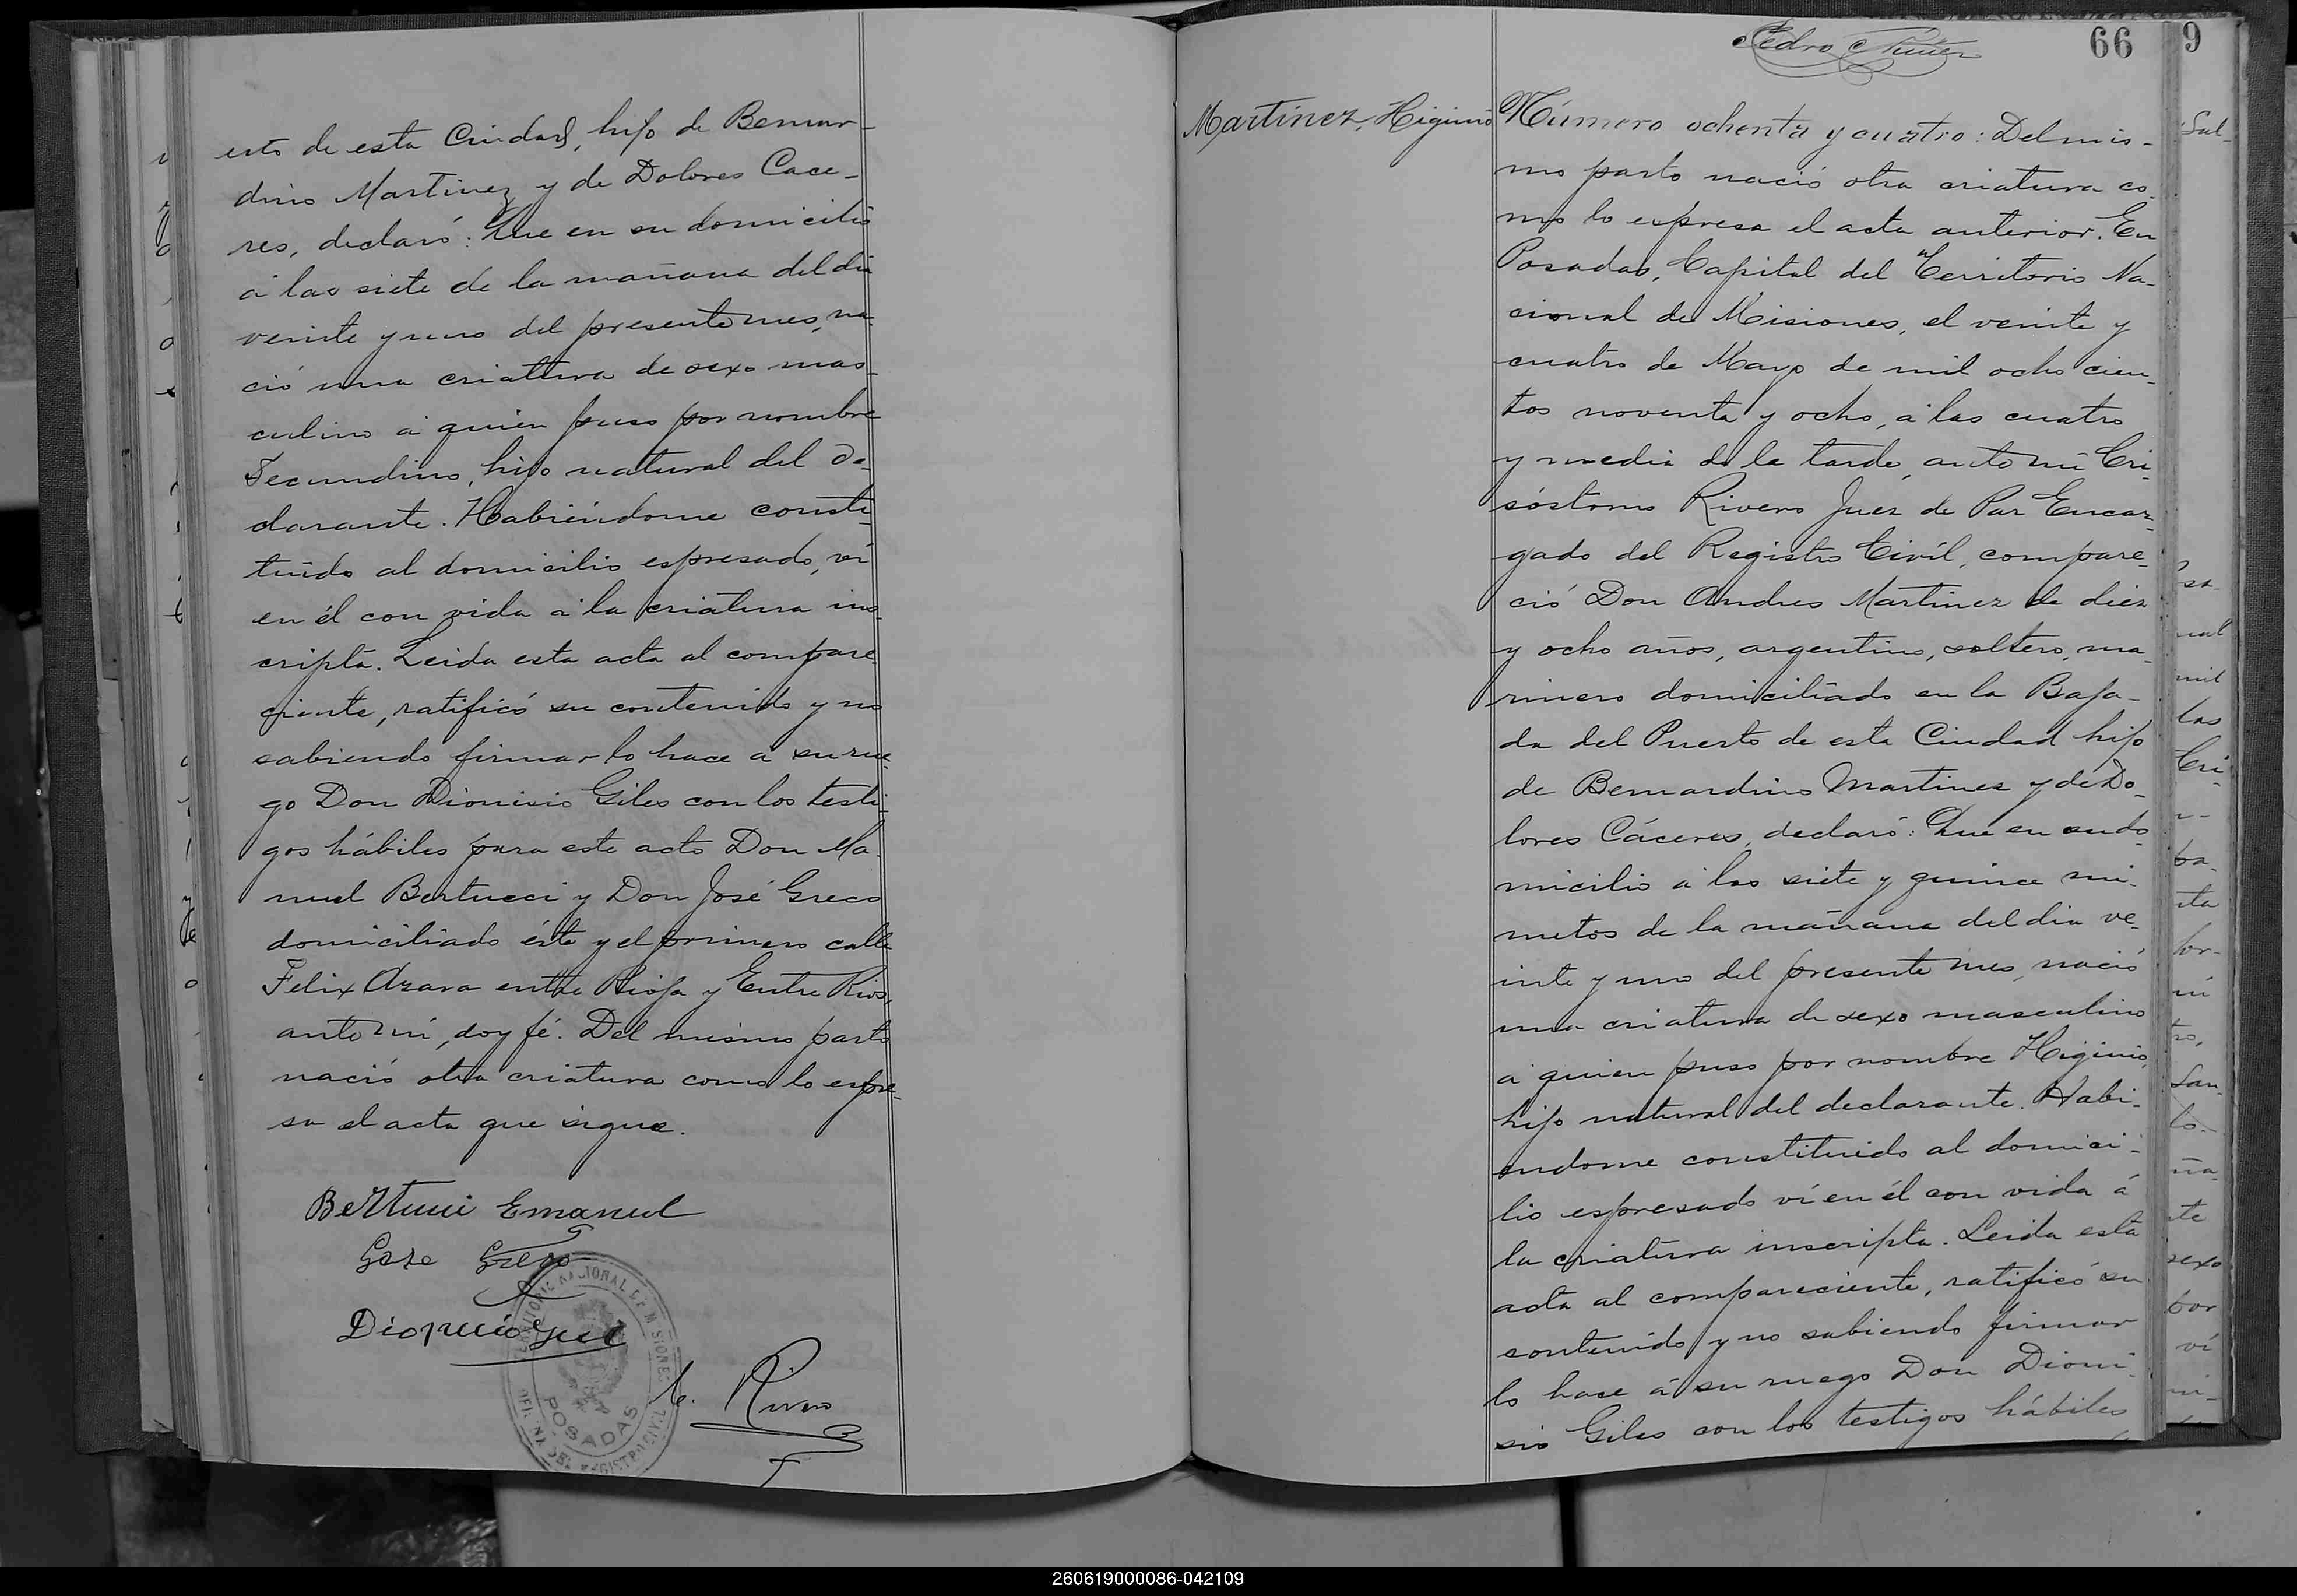 erto de esta Ciudad, hijo de Bernar-
dino Martinez y de Dolores Cace-
res, declaró: Que en su domicilio
á las siete de la mañana del dia
veinte y uno del presente mes, na-
ció una criatura de sexo mas-
culino á quien puso por nombre
Secundino, hijo natural del de-
clarante. Habiéndome consti-
tuido al domicilio espresado, ví
en él con vida á la criatura ins-
cripta. Leida esta acta al compare-
ciente, ratificó su contenido y no
sabiendo firmar lo hace a su rue-
go Don Dionisio Giles con los testi-
gos hábiles para este acto Don Ma-
nuel Bertucci y Don José Greco
domiciliado éste y el primero calle
Felix Azara entre Rioja y Entre Rios,
ante mí, doy fé. Del mismo parto
nació otra criatura como lo espre-
sa el acta que sigue.
Bertucci Emanuel
Gose Greco
C. Rivero
TERRITORIO NACIONAL DE MISIONES
POSADAS
OFICINA DEL REGISTRO CIVIL
Pedro Nuñez
66
Martinez, Higinio
Número ochenta y cuatro: Del mis-
mo parto nació otra criatura co-
mo lo espresa el acta anterior. En
Posadas, Capital del Territorio Na-
cional de Misiones, el veinte y
cuatro de Mayo de mil ocho cien-
tos noventa y ocho, á las cuatro
y media de la tarde, ante mi Cri-
sóstomo Rivero Juez de Paz Encar-
gado del Registro Civíl, compare-
ció Don Andres Martinez de diez
y ocho años, argentino, soltero, ma-
rinero domiciliado en la Baja-
da del Puerto de esta Ciudad hijo
de Bernardino Martinez y de Do-
lores Cáceres, declaró: Que en su do-
micilio á las siete y quince mi-
nutos de la mañana del dia ve-
inte y uno del presente mes, nació
una criatura de sexo masculino
á quien puso por nombre Higinio,
hijo natural del declarante. Habi-
endome constituido al domici-
lio espresado ví en él con vida á
la criatura inscripta. Leida esta
acta al compareciente, ratificó su
contenido y no sabiendo firmar
lo hace á su ruego Don Dioni-
sio Giles con los testigos hábiles
9
Sal-
sa-
nal
mil
las
Cri-
ta
por-
San-
lo-
te
sexo
por
ví
260619000086-042109